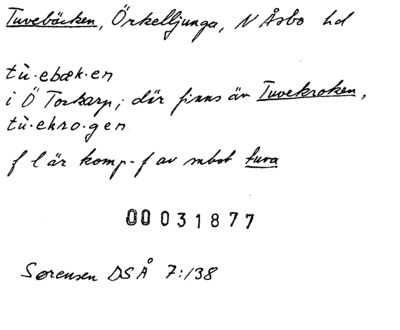 Tuvebäcken, Örkelljunga, N Åsbo hd
tù·ebæk·en
i Ö Torkarp; där finns äv Tuvekroken,
tù·ekro·gen
f l är komp-f av subst tuva
00031877
Sørensen DSÅ 7:138